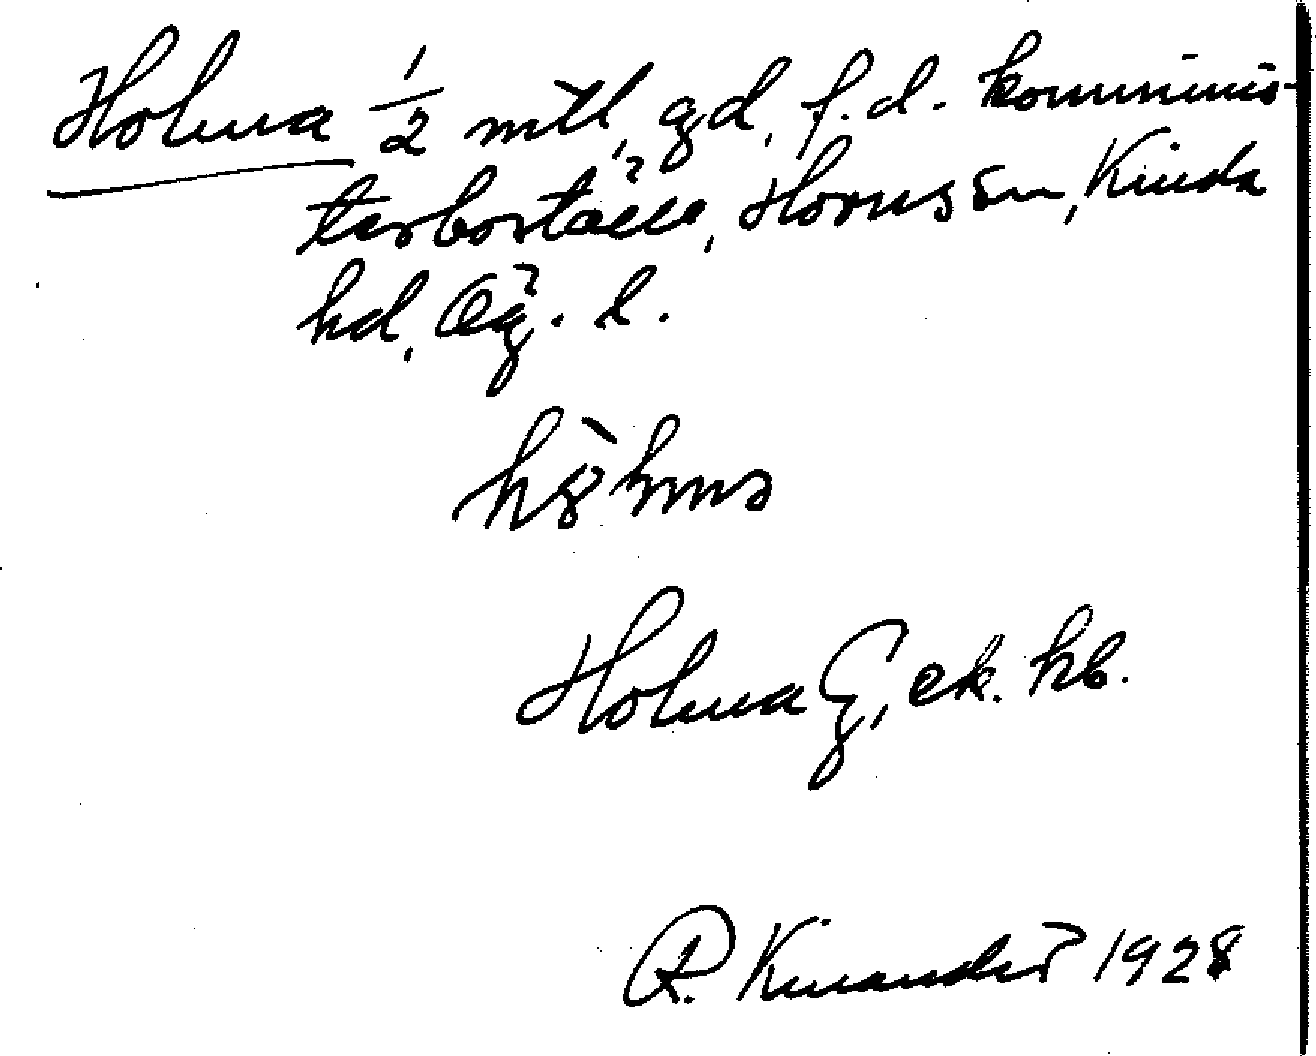 Holma ½ mtl, gd, f.d. komminis-
terboställe, Horns sn, Kinda
hd, Ög. l.
Holma G, ek. kb.
R. Kinander 1928